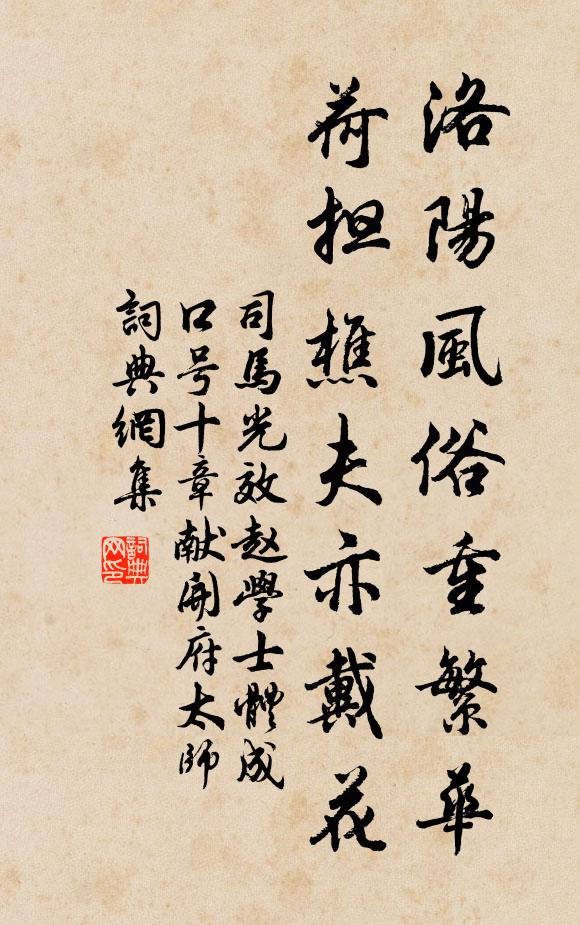 洛陽風俗重繁華
荷担樵夫亦戴花
司馬光效赵學士體成
口号十章献開府太師
詞典網集
詞典
网印